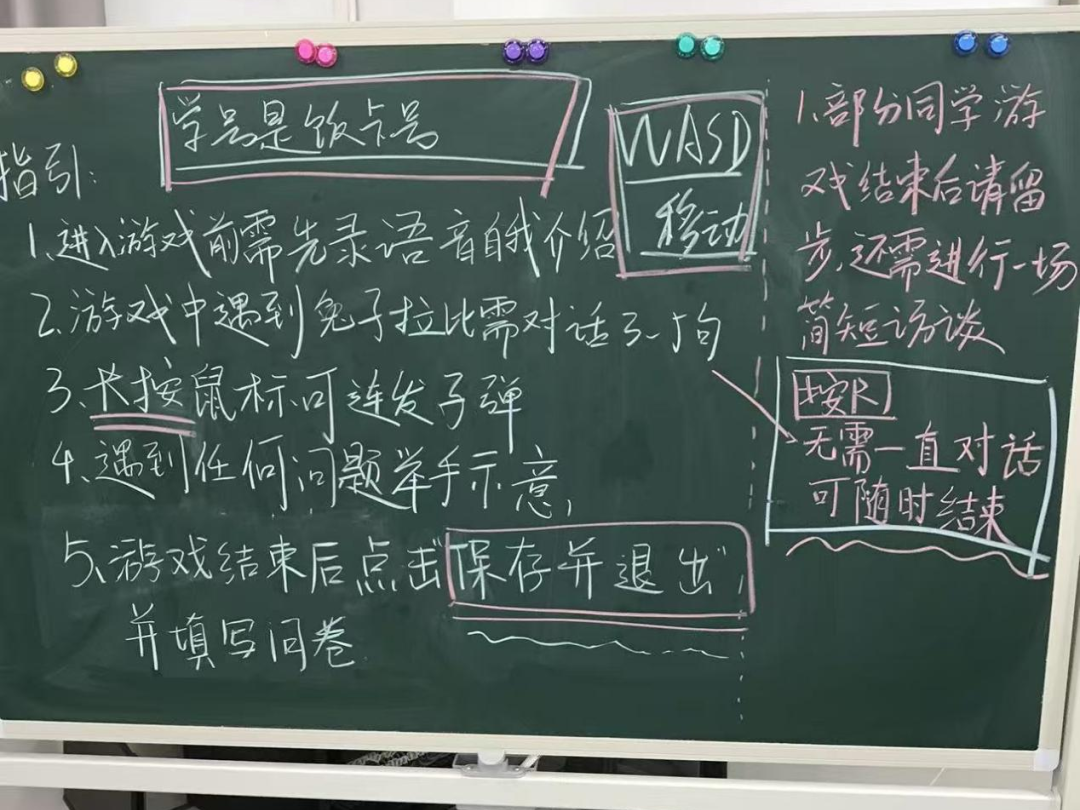 学号是饭卡号
指引:
1.进入游戏前需先录语音自我介绍
2.游戏中遇到兔子拉比需对话3-5句
3、长按鼠标可连发子弹
4.遇到任何问题举手示意,
5.游戏结束后点击保存并退出
并填写问卷
WASD
移动
1.部分同学游
戏结束后请留
步,还需进行一场
简短访谈
按R
无需一直对话
可随时结束